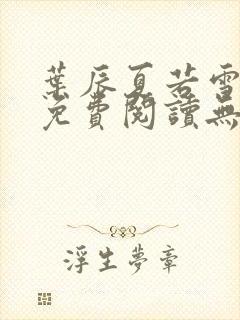 葉辰夏若雪
免費閱讀無
浮生夢章